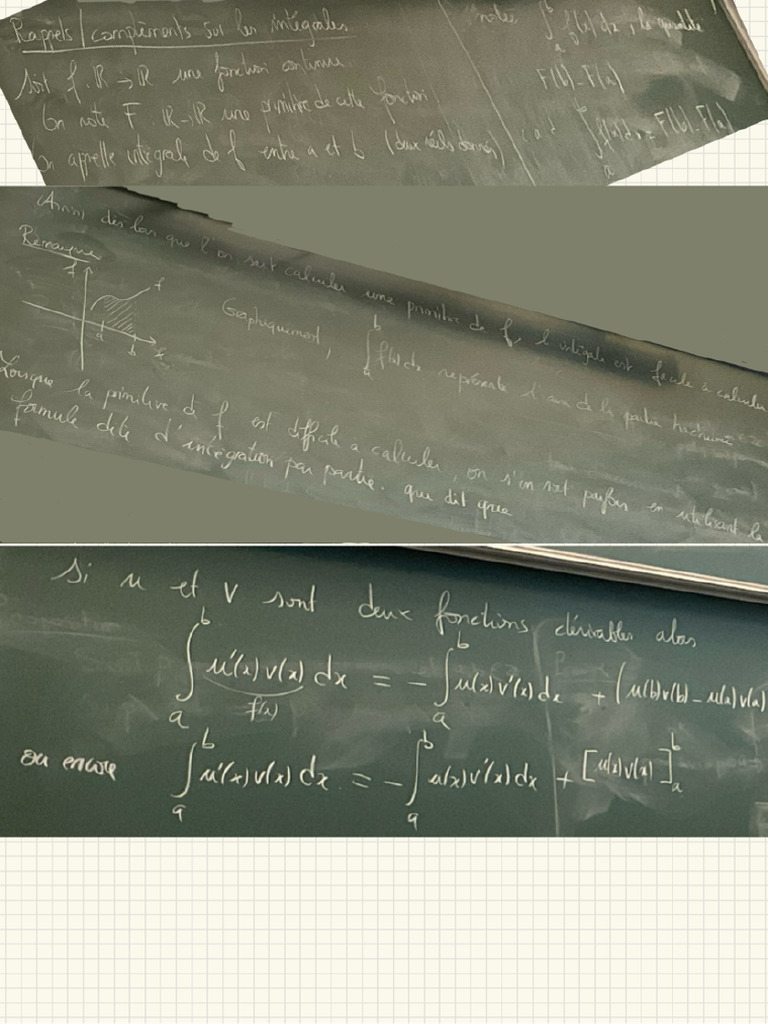 Rappels / compléments sur les intégrales
Soit f : ℝ → ℝ une fonction continue.
On note F : ℝ → ℝ une primitive de cette fonction
On appelle intégrale de f entre a et b (deux réels donnés)
notée ∫_a^b f(x) dx, la quantité
F(b) - F(a)
c a d ∫_a f(x) dx = F(b) - F(a)
Ainsi dès lors que l'on sait calculer une primitive de f, l'intégrale est facile à calculer
Remarque
f
a b x
Graphiquement, ∫_a^b f(x) dx représente l'aire de la partie hachurée
Lorsque la primitive de f est difficile a calculer, on s'en sort parfois en utilisant la
formule dite d'intégration par partie. qui dit que
Si u et v sont deux fonctions dérivables alors
∫_a^b u'(x) v(x) dx = - ∫_a^b u(x) v'(x) dx + (u(b)v(b) - u(a)v(a)
f(x)
ou encore ∫_a^b u'(x) v(x) dx = - ∫_a^b u(x) v'(x) dx + [u(x)v(x)]_a^b